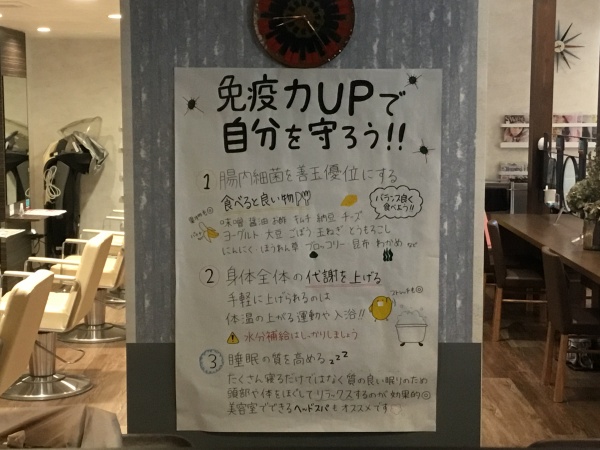 免疫力UPで
自分を守ろう!!
1 腸内細菌を善玉優位にする
食べると良い物
バランス良く
食べよう!!
味噌 醤油 お酢 キムチ 納豆 チーズ
ヨーグルト 大豆 ごぼう 玉ねぎ とうもろこし
にんにく ほうれん草 ブロッコリー 昆布 わかめ など
2 身体全体の代謝を上げる
手軽に上げられるのは
体温の上がる運動や入浴!!
ストレッチも
水分補給はしっかりしましょう
3 睡眠の質を高める zzz
たくさん寝るだけではなく質の良い眠りのため
頭部や体をほぐしてリラックスするのが効果的
美容室でできるヘッドスパもオススメです